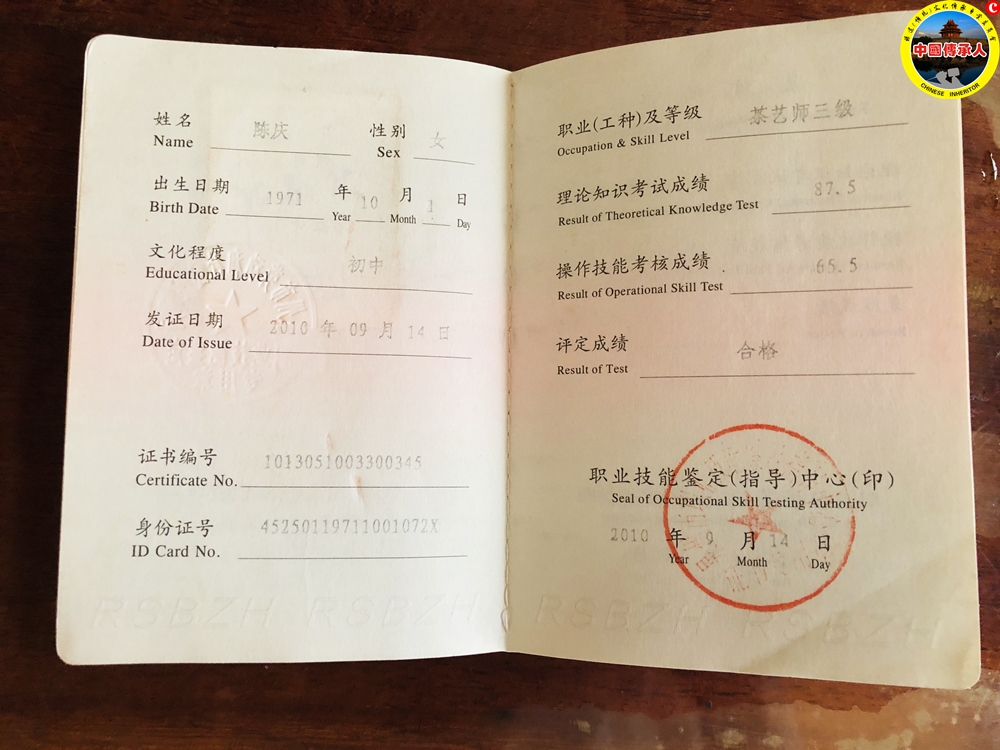 姓名 陈庆 性别 女
Name Sex
出生日期 1971 年 10 月 1 日
Birth Date Year Month Day
文化程度 初中
Educational Level
发证日期 2010 年 09 月 14 日
Date of Issue
证书编号 1013051003300345
Certificate No.
身份证号 45250119711001072X
ID Card No.
RSBZH RSBZH
职业(工种)及等级 茶艺师三级
Occupation & Skill Level
理论知识考试成绩 87.5
Result of Theoretical Knowledge Test
操作技能考核成绩 65.5
Result of Operational Skill Test
评定成绩 合格
Result of Test
职业技能鉴定(指导)中心(印)
Seal of Occupational Skill Testing Authority
2010 年 9 月 14 日
Year Month Day
RSBZH RSBZH
中國傳承人
CHINESE INHERITOR
C